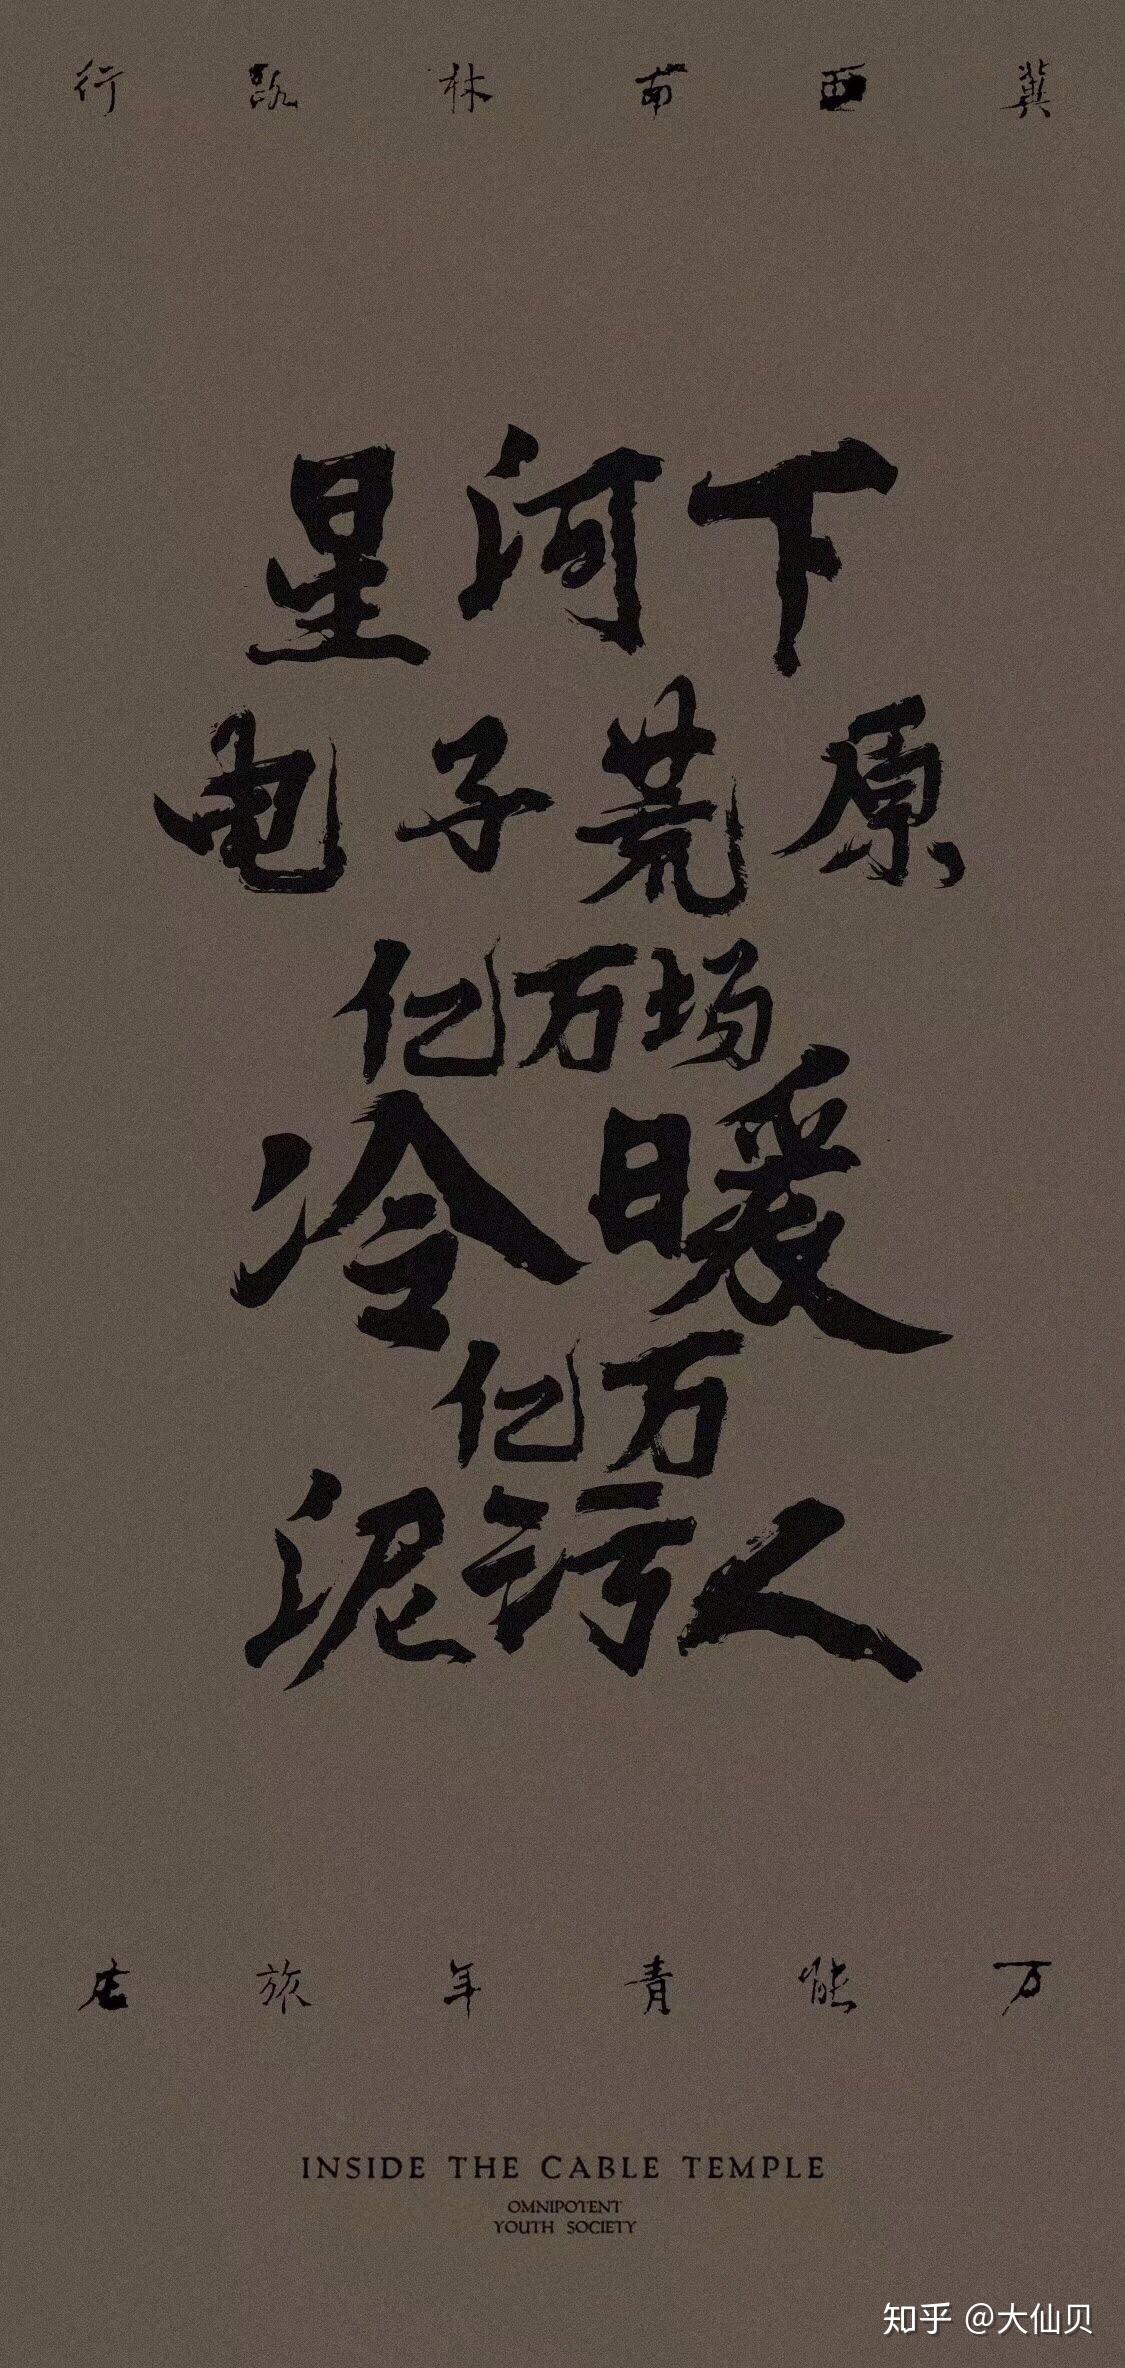 冀西南林路行
星河下
电子荒原
亿万场
冷暖
亿万
泥污人
万能青年旅店
INSIDE THE CABLE TEMPLE
OMNIPOTENT
YOUTH SOCIETY
知乎 @大仙贝